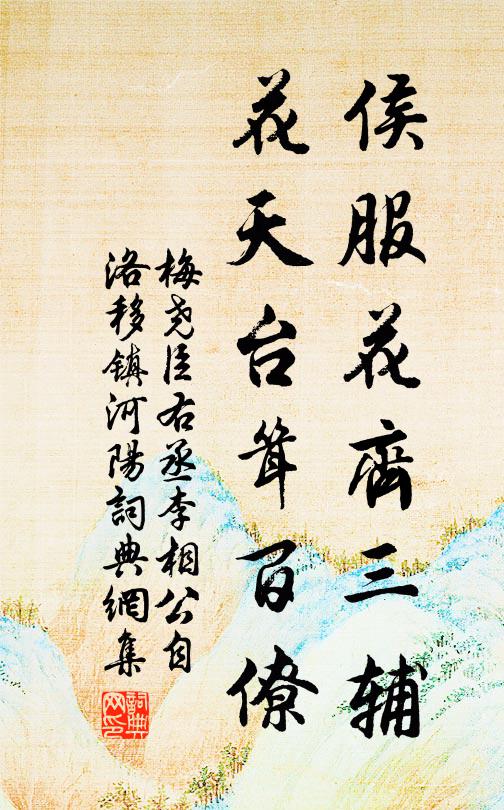 侯服花齊三辅
花天台耸百僚
梅尧臣右丞李相公自
洛移鎮河陽詞典網集
詞典网印